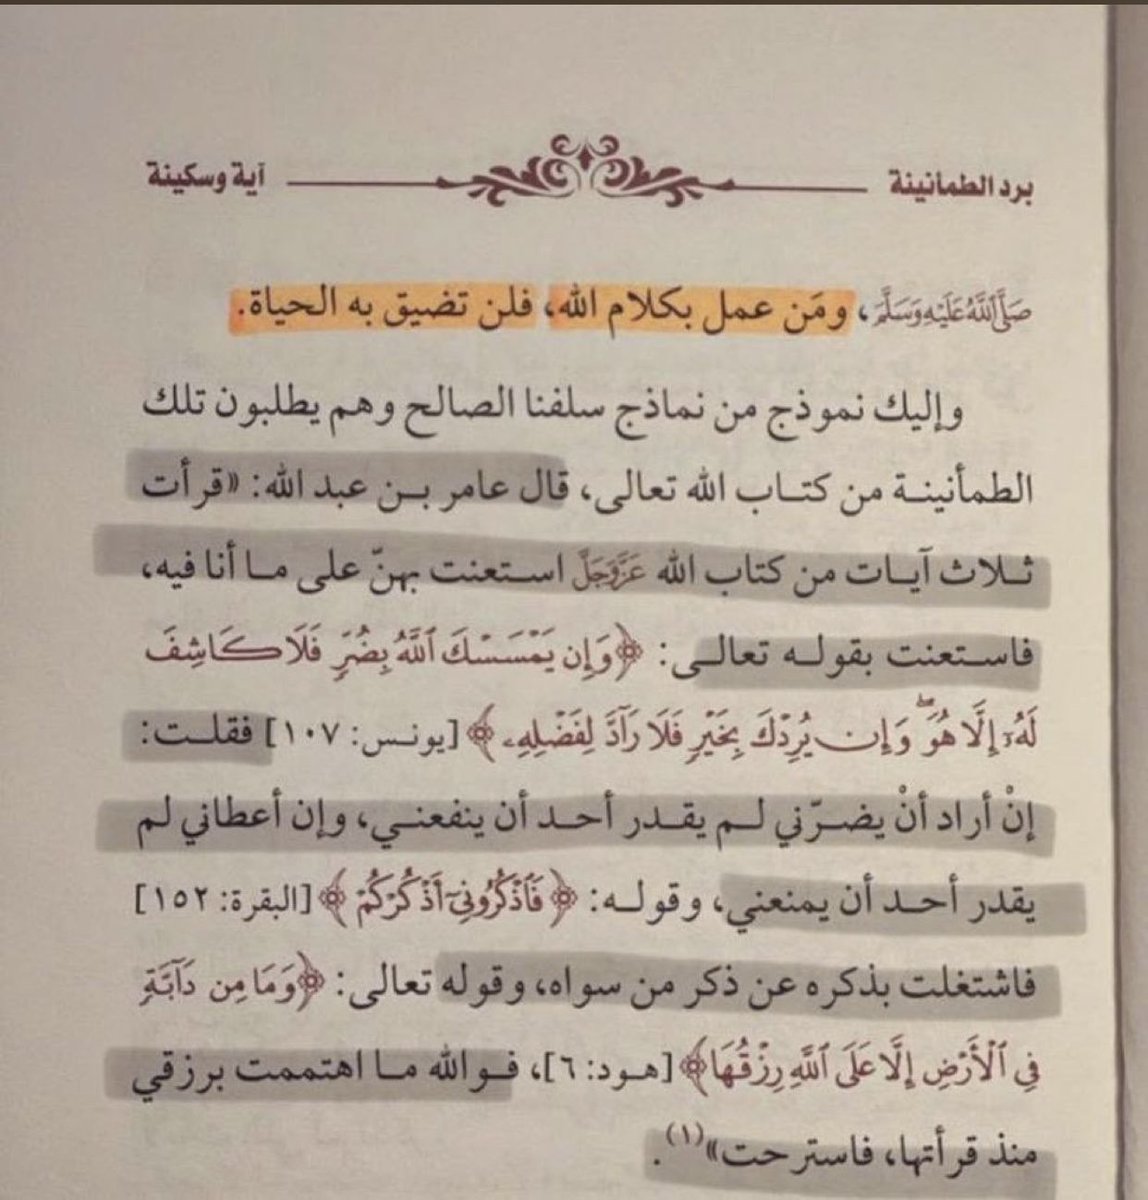 برد الطمانينة
آية وسكينة
صَلَّى ٱللَّهُ عَلَيْهِ وَسَلَّمَ، ومَن عمل بكلام الله، فلن تضيق به الحياة.
وإليك نموذج من نماذج سلفنا الصالح وهم يطلبون تلك
الطمأنينة من كتاب الله تعالى، قال عامر بن عبد الله: «قرأت
ثلاث آيات من كتاب الله عَزَّوَجَلَّ استعنت بهنّ على ما أنا فيه،
فاستعنت بقوله تعالى: ﴿وَإِن يَمْسَسْكَ ٱللَّهُ بِضُرٍّ فَلَا كَاشِفَ
لَهُۥٓ إِلَّا هُوَۖ وَإِن يُرِدْكَ بِخَيْرٍ فَلَا رَآدَّ لِفَضْلِهِۦ﴾ [يونس: ١٠٧] فقلت:
إنْ أراد أنْ يضرّني لم يقدر أحد أن ينفعني، وإن أعطاني لم
يقدر أحد أن يمنعني، وقوله: ﴿فَٱذْكُرُونِىٓ أَذْكُرْكُمْ﴾ [البقرة: ١٥٢]
فاشتغلت بذكره عن ذكر من سواه، وقوله تعالى: ﴿وَمَا مِن دَآبَّةٍ
فِى ٱلْأَرْضِ إِلَّا عَلَى ٱللَّهِ رِزْقُهَا﴾ [هود: ٦]، فوالله ما اهتممت برزقي
منذ قرأتها، فاسترحت»(١).